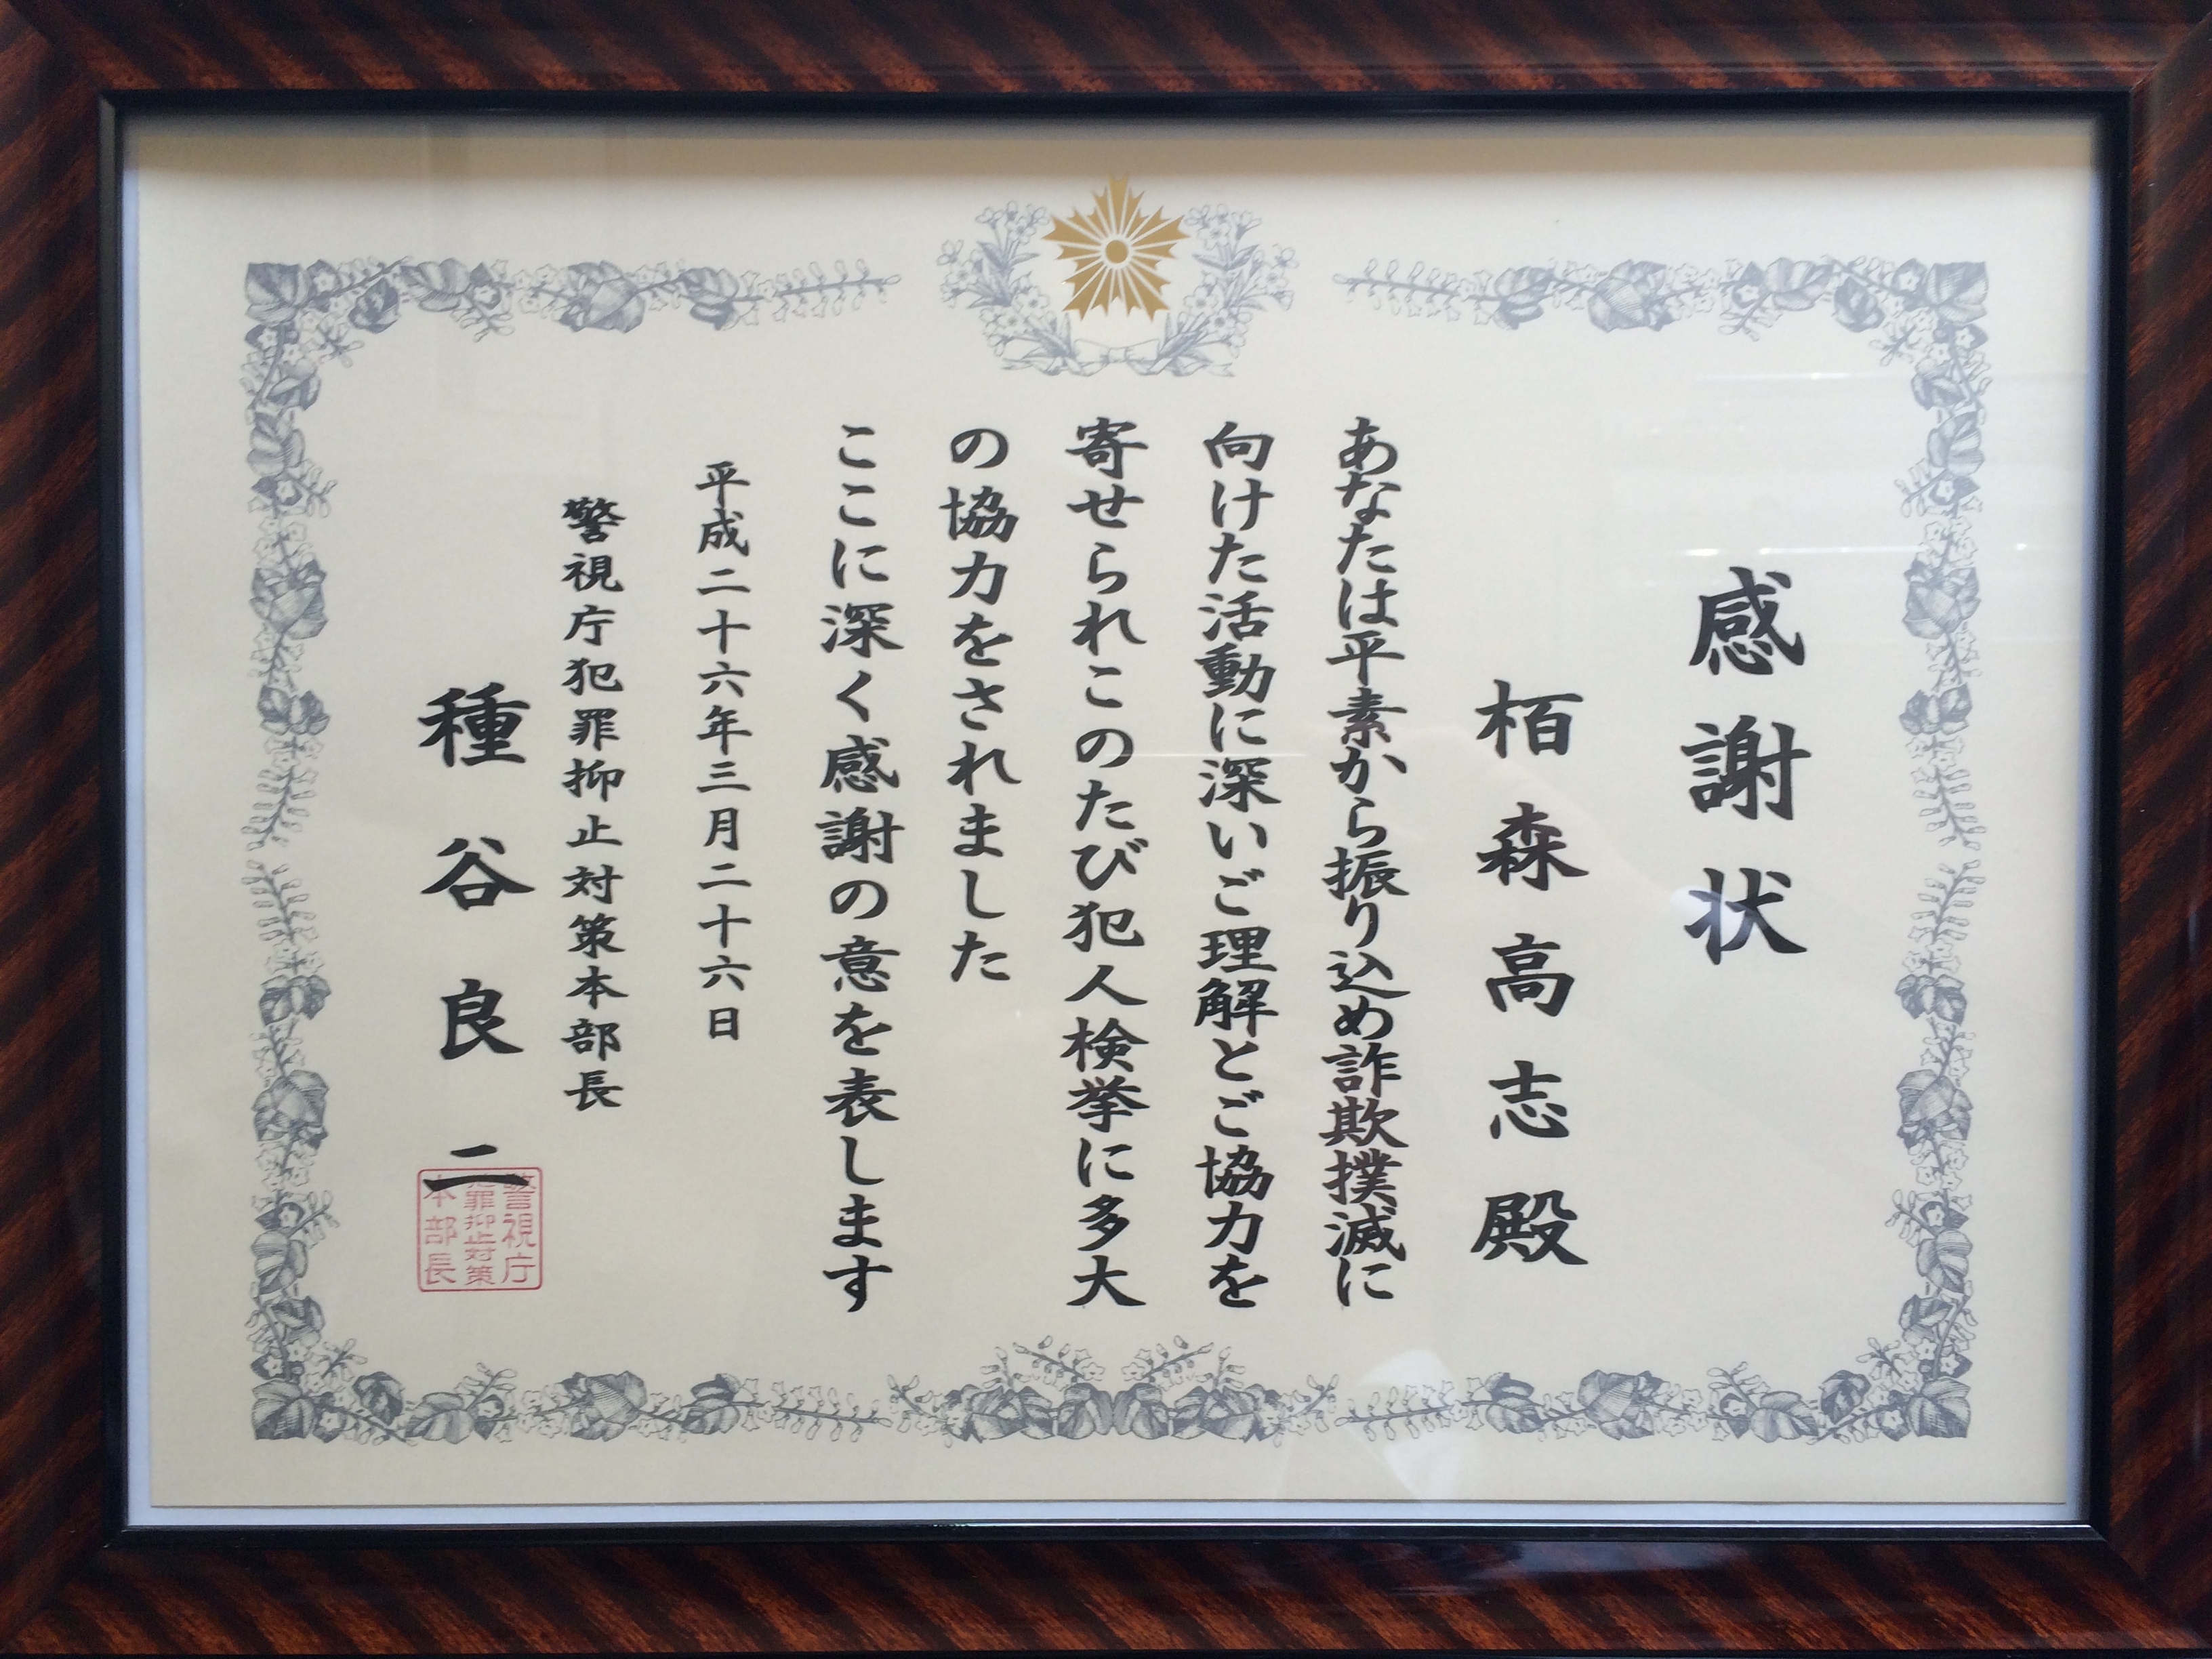 感謝状
栢森高志殿
あなたは平素から振り込め詐欺撲滅に
向けた活動に深いご理解とご協力を
寄せられこのたび犯人検挙に多大
の協力をされました
ここに深く感謝の意を表します
平成二十六年三月二十六日
警視庁犯罪抑止対策本部長
種谷良二
警視庁
犯罪抑止対策
本部長